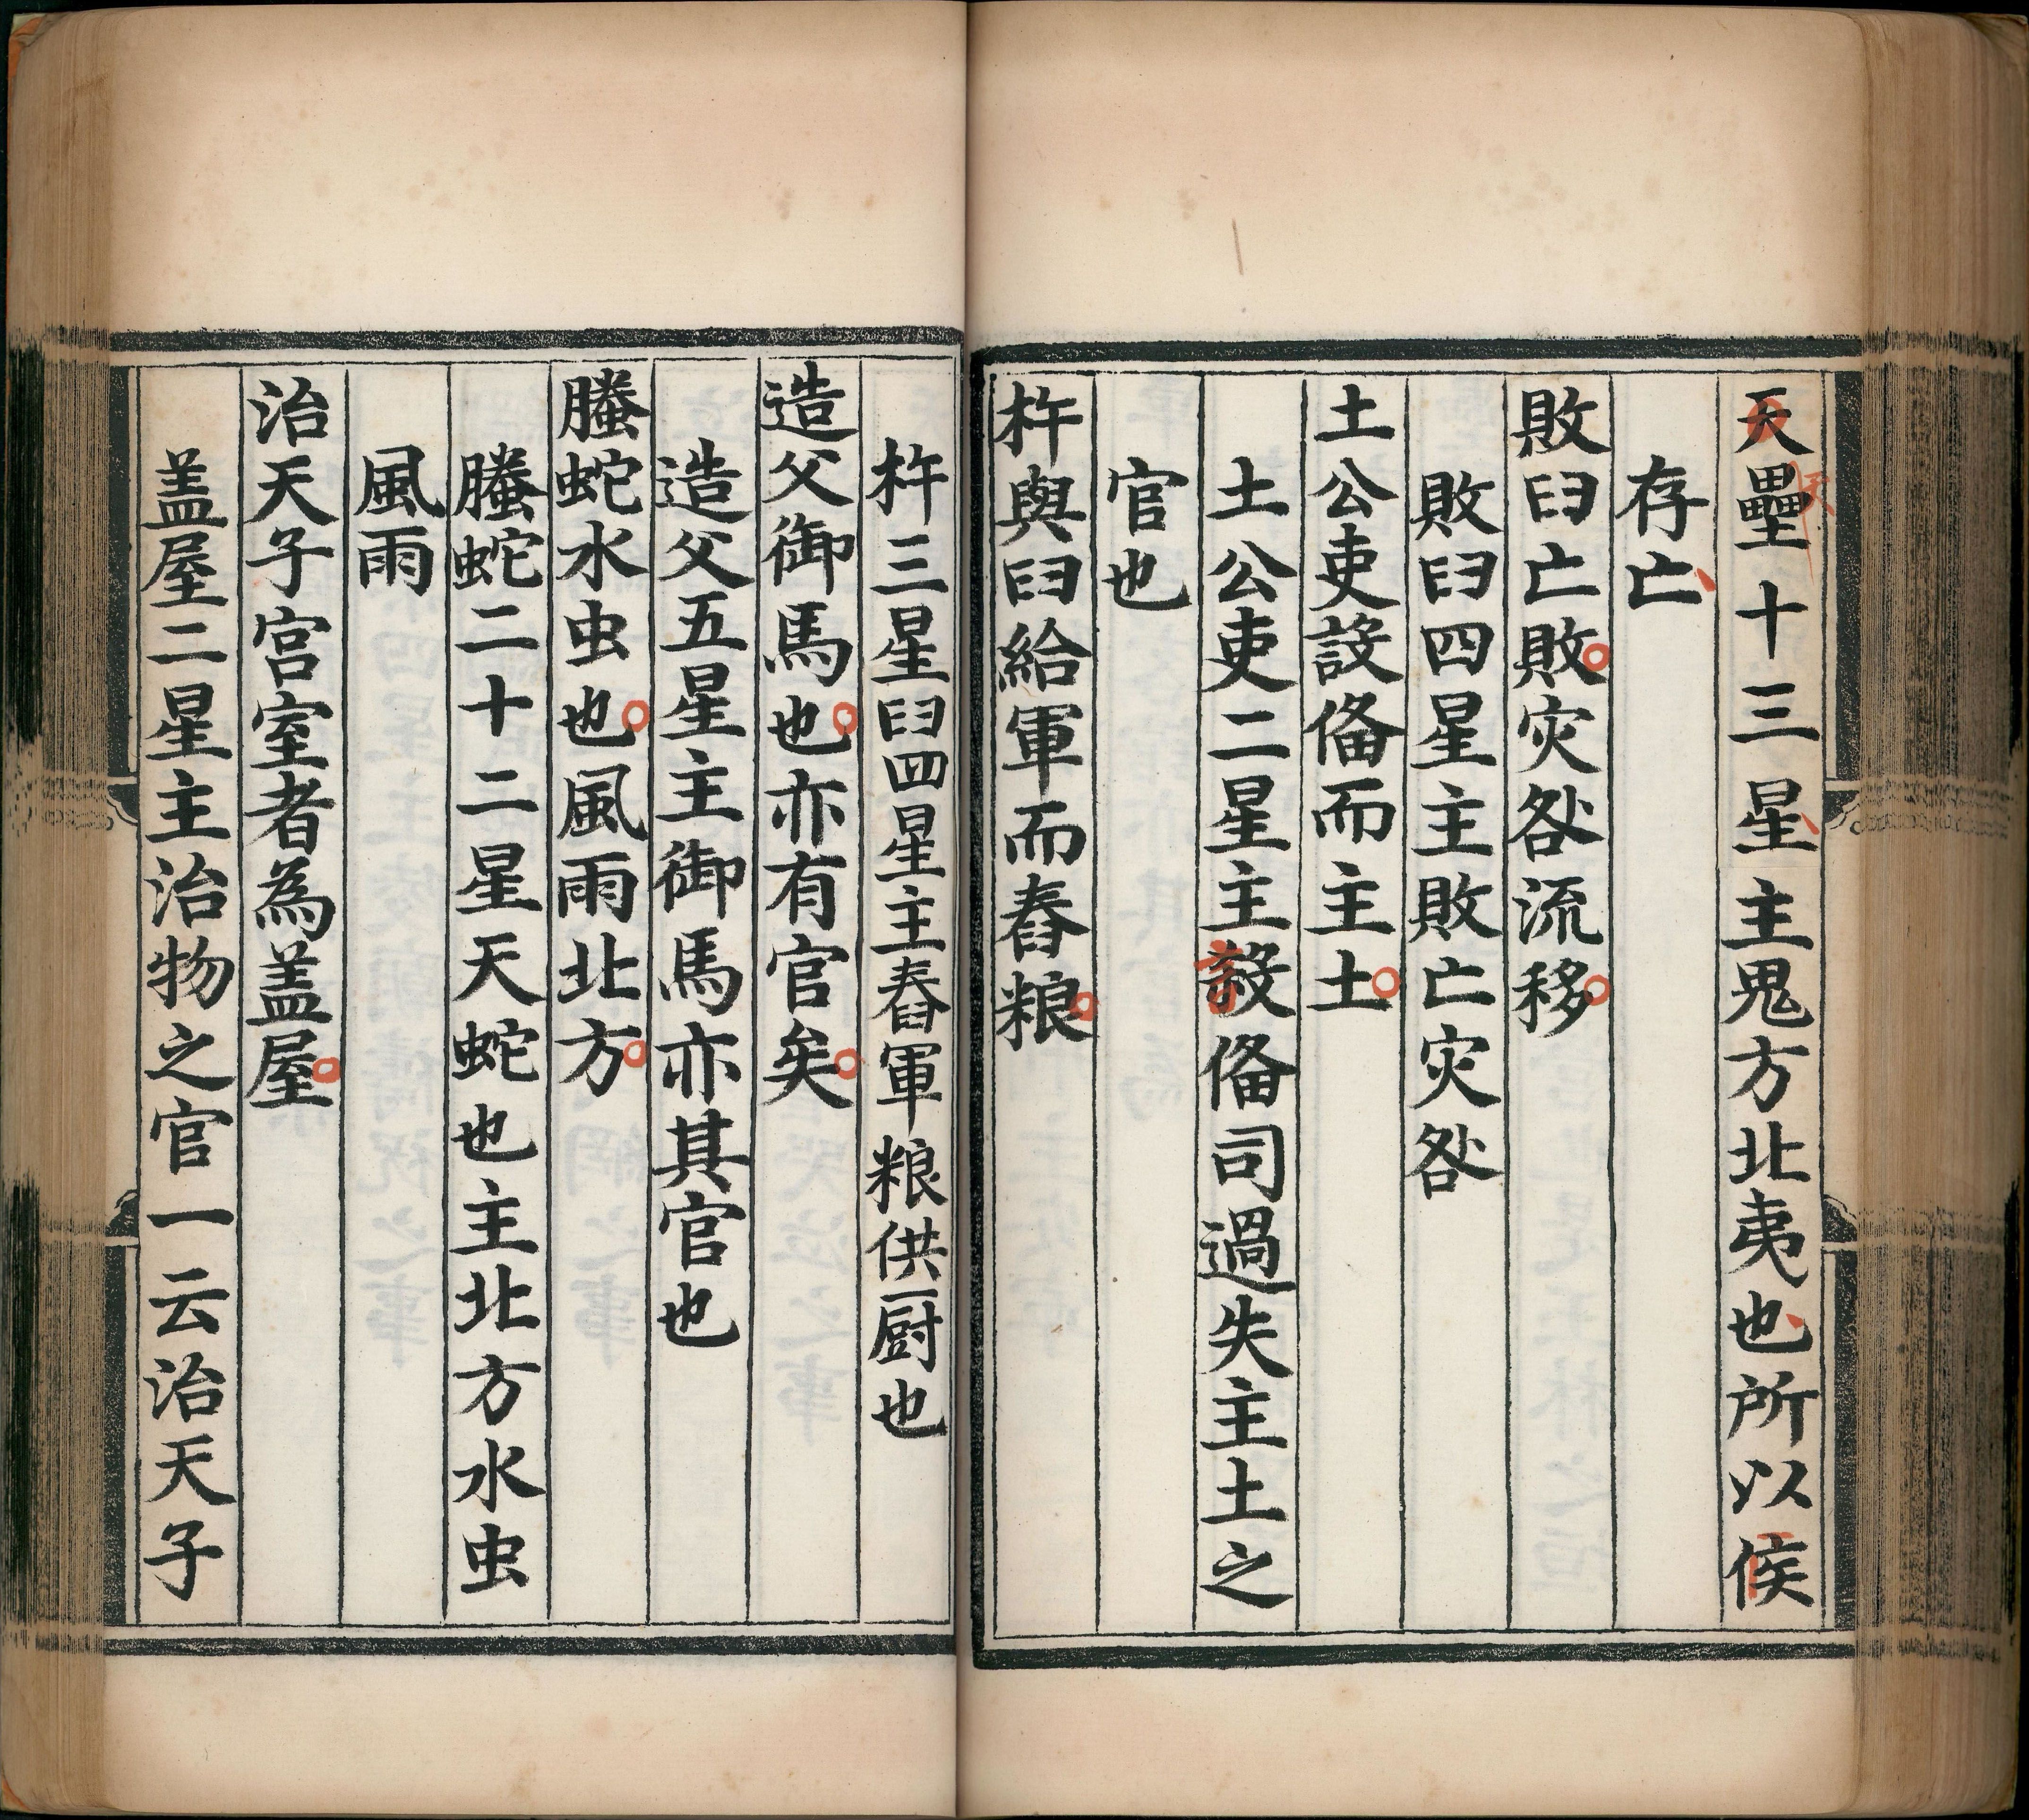 天壘十三星主鬼方北夷也所以候
存亡
敗臼亡敗灾咎流移
敗臼四星主敗亡灾咎
土公吏設俻而主土
土公吏二星主設俻司過失主土之
官也
杵與臼給軍而舂粮
杵三星臼四星主舂軍粮供厨也
造父御馬也亦有官矣
造父五星主御馬亦其官也
螣蛇水虫也風雨北方
螣蛇二十二星天蛇也主北方水虫
風雨
治天子宫室者為盖屋
盖屋二星主治物之官一云治天子